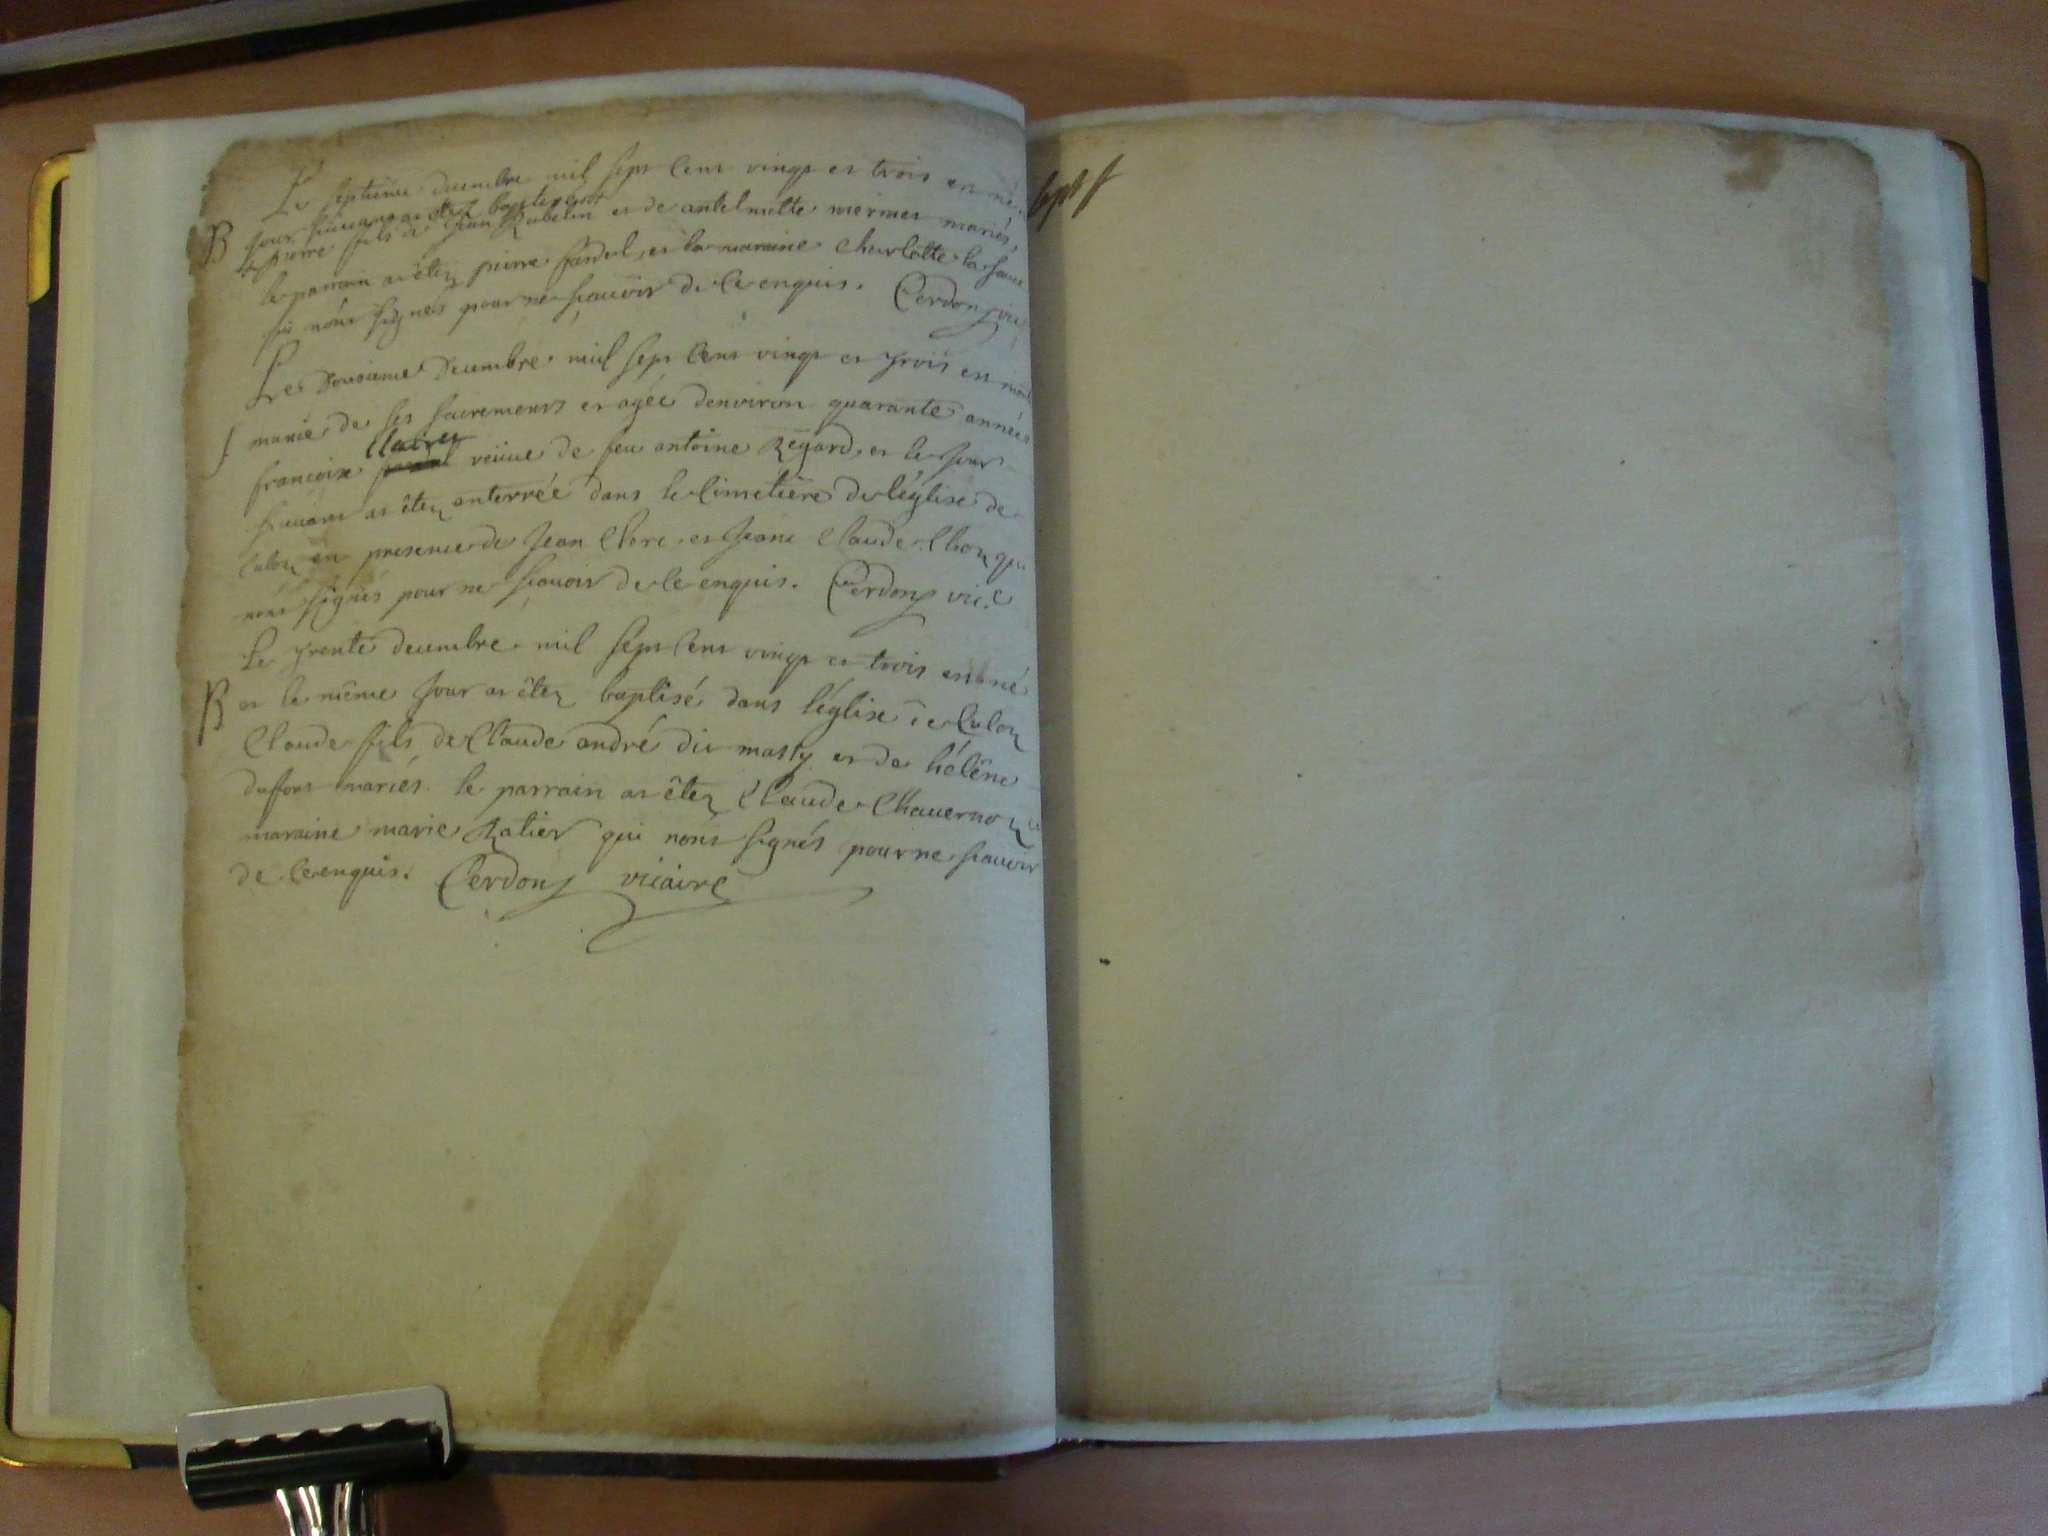 Le septieme decembre mil sept cent vingt et trois est né
B jour suivant at êtez baptisé
pierre fils de Jean Rubelin et de antelmette mermet mariés,
le parrain at êtez pierre et la maraine Charlotte la
qui nons signés pour ne scauoir de ce enquis. Cerdon vic
Le Douzieme Decembre mil sept cent vingt et trois est
S munie de ses sacremens et agée denviron quarante années
francoise Claire veüue de feu antoine Regard, et le jour
suiuant at êtez enterrée dans le cimetière de léglise de
Culoz en presence de Jean Clerc et Jean Claude qui
nons signés pour ne scauoir de ce enquis. Cerdon vic.e
Le trente decembre mil sept cent vingt et trois est né
B et le même jour at êtez baptisé dans léglise de Culoz
Claude fils de Claude andré dit masty et de hélêne
duffour mariés. le parrain at êtez Claude Chauernoz
maraine marie Ratier qui nons signés pour ne scauoir
de ce enquis. Cerdon vicaire